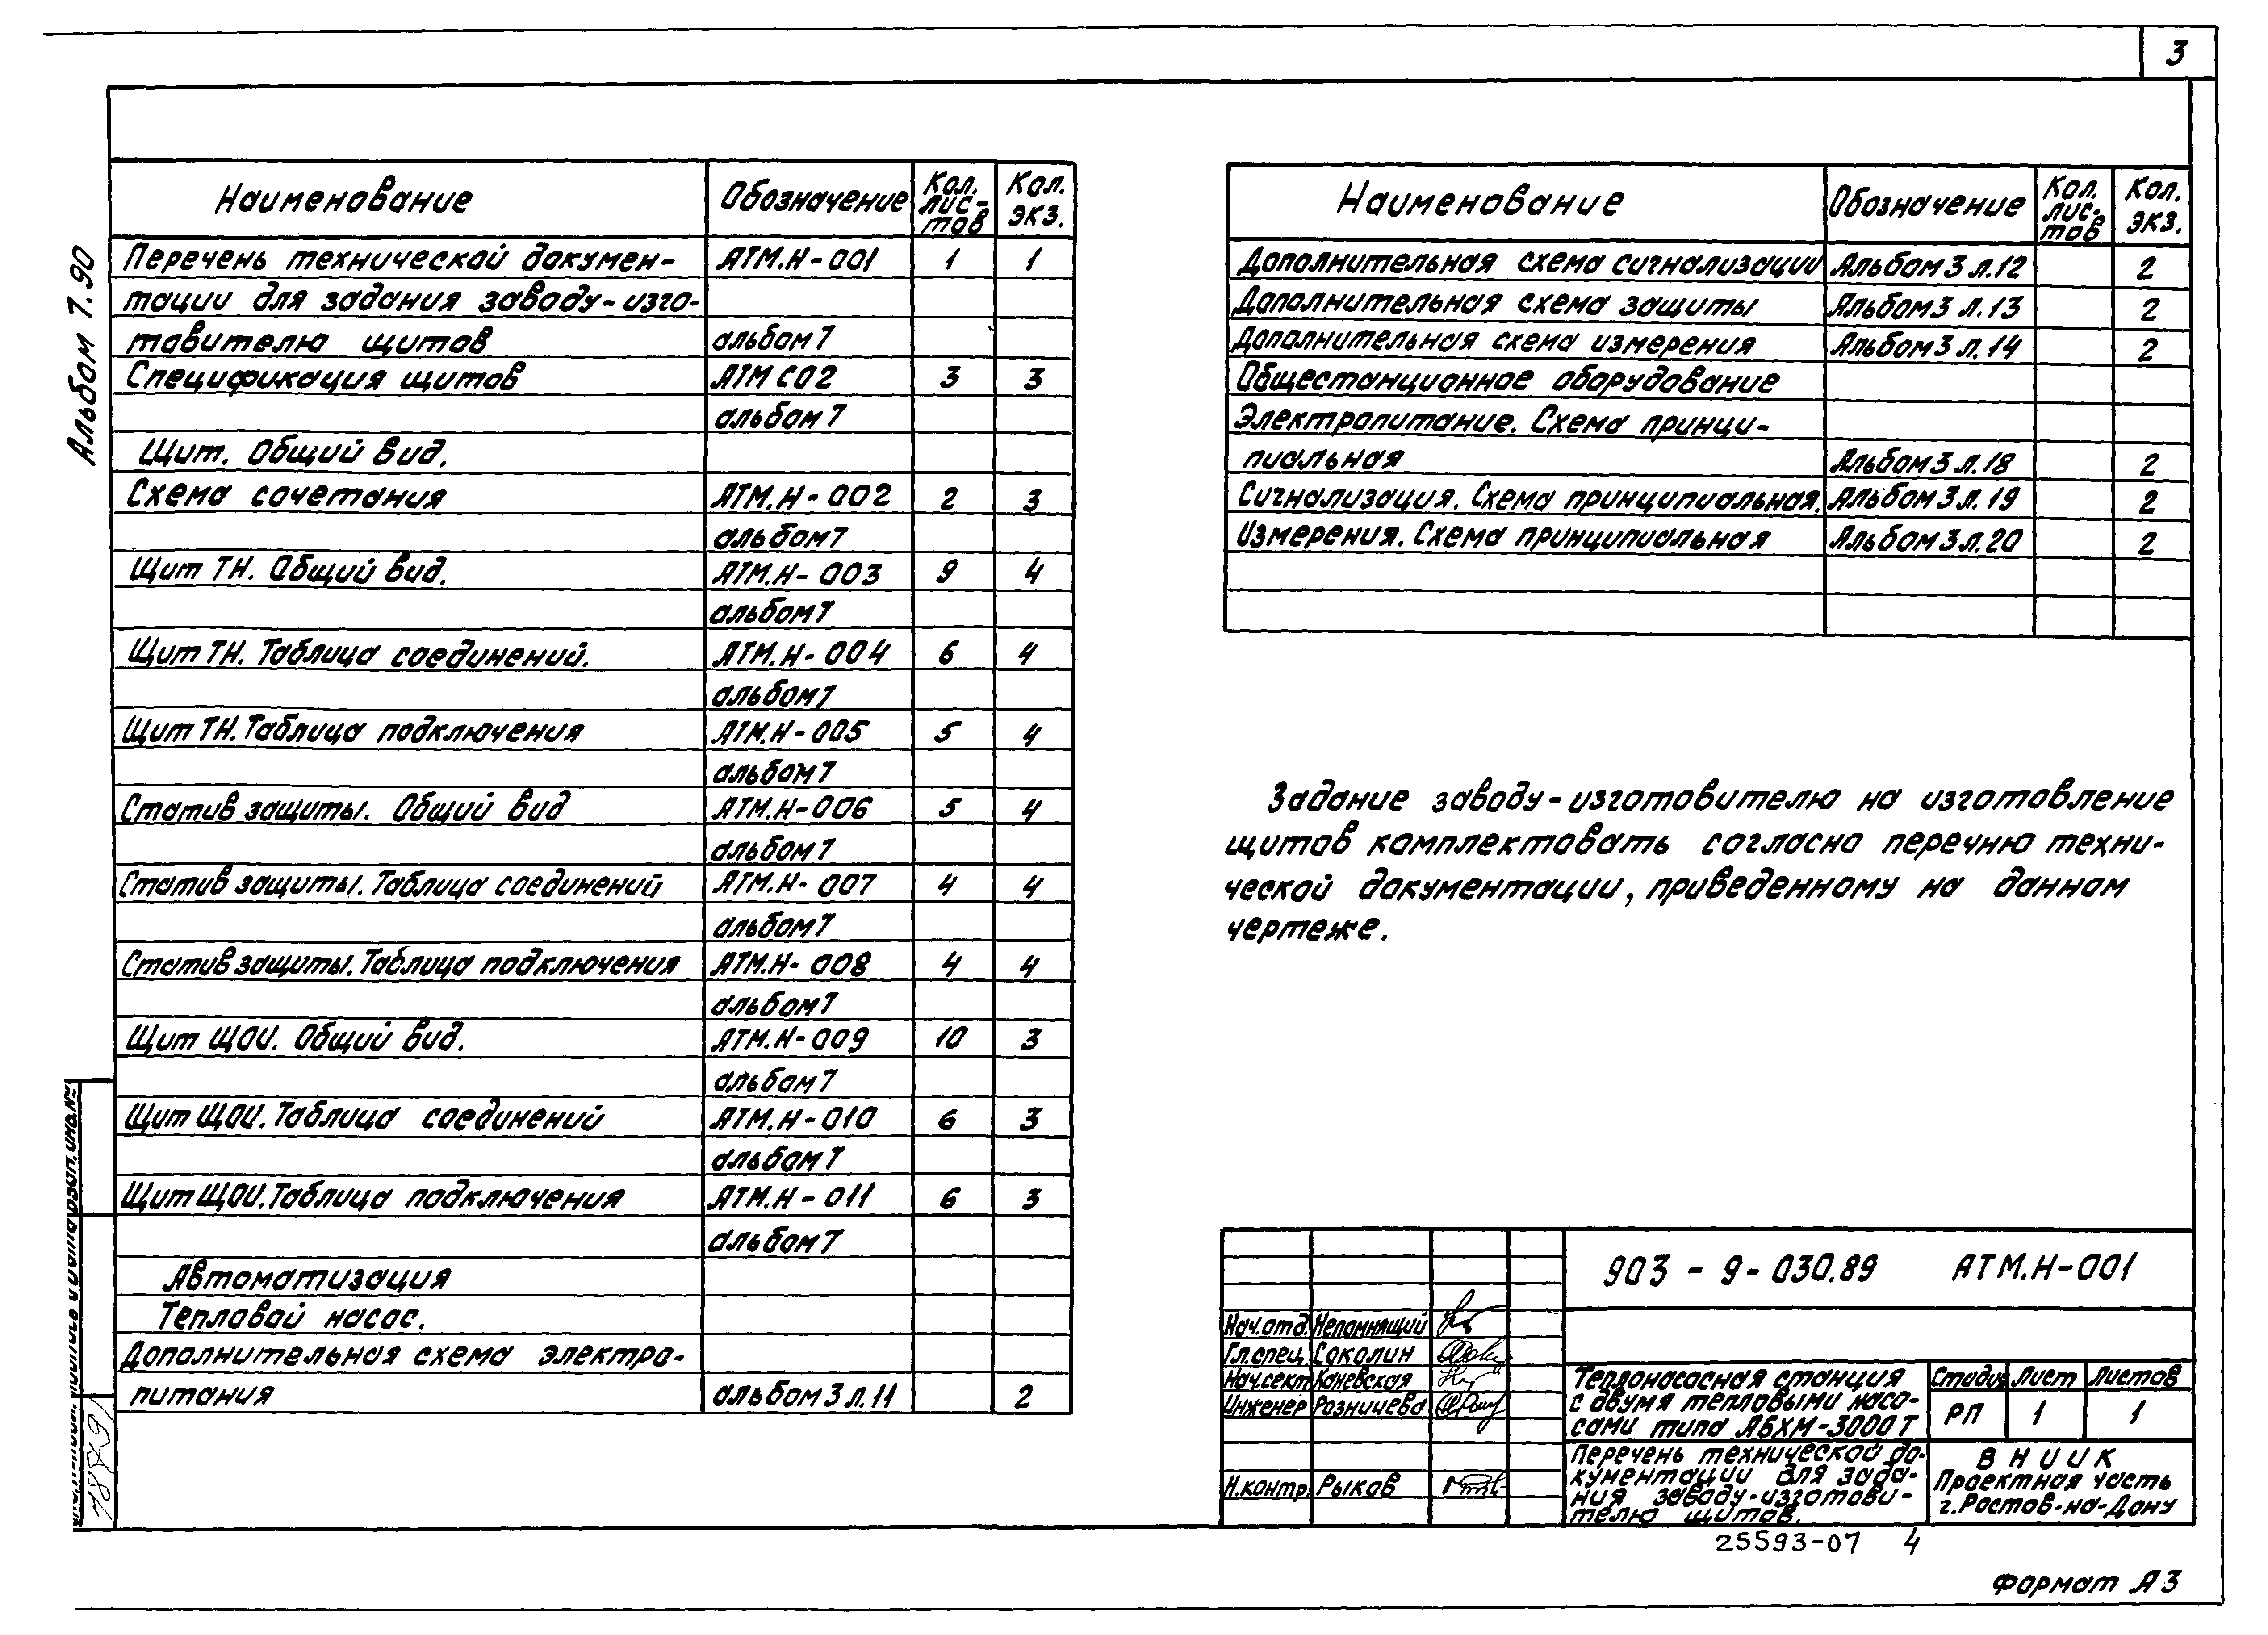 3
Альбом 7.90
Наименование Обозначение Кол. лис-тов Кол. экз.
Перечень технической докумен- АТМ.Н-001 1 1
тации для задания заводу-изго-
товителю щитов альбом 7
Спецификация щитов АТМ СО2 3 3
альбом 7
Щит. Общий вид.
Схема сочетания АТМ.Н-002 2 3
альбом 7
Щит ТН. Общий вид. АТМ.Н-003 9 4
альбом 7
Щит ТН. Таблица соединений. АТМ.Н-004 6 4
альбом 7
Щит ТН. Таблица подключения АТМ.Н-005 5 4
альбом 7
Статив защиты. Общий вид АТМ.Н-006 5 4
альбом 7
Статив защиты. Таблица соединений АТМ.Н-007 4 4
альбом 7
Статив защиты. Таблица подключения АТМ.Н-008 4 4
альбом 7
Щит ЩОИ. Общий вид. АТМ.Н-009 10 3
альбом 7
Щит ЩОИ. Таблица соединений АТМ.Н-010 6 3
альбом 7
Щит ЩОИ. Таблица подключения АТМ.Н-011 6 3
альбом 7
Автоматизация
Тепловой насос.
Дополнительная схема электро-
питания альбом 3 л.11 2
Наименование Обозначение Кол. лис. тов Кол. экз.
Дополнительная схема сигнализации Альбом 3 л.12 2
Дополнительная схема защиты Альбом 3 л.13 2
Дополнительная схема измерения Альбом 3 л.14 2
Общестанционное оборудование
Электропитание. Схема принци-
пиальная Альбом 3 л.18 2
Сигнализация. Схема принципиальная. Альбом 3 л.19 2
Измерения. Схема принципиальная Альбом 3 л.20 2
Задание заводу-изготовителю на изготовление
щитов комплектовать согласно перечню техни-
ческой документации, приведенному на данном
чертеже.
903-9-030.89 АТМ.Н-001
Нач.отд. Непомнящий
Гл.спец. Соколин
Нач.сект. Каневская
Инженер Розничева
Н.контр. Рыков
Теплонасосная станция
с двумя тепловыми насо-
сами типа АБХМ-3000Т
Стадия Лист Листов
РП 1 1
Перечень технической до-
кументации для зада-
ния заводу-изготови-
телю щитов.
ВНИИК
Проектная часть
г. Ростов-на-Дону
25593-07 4
Формат А3